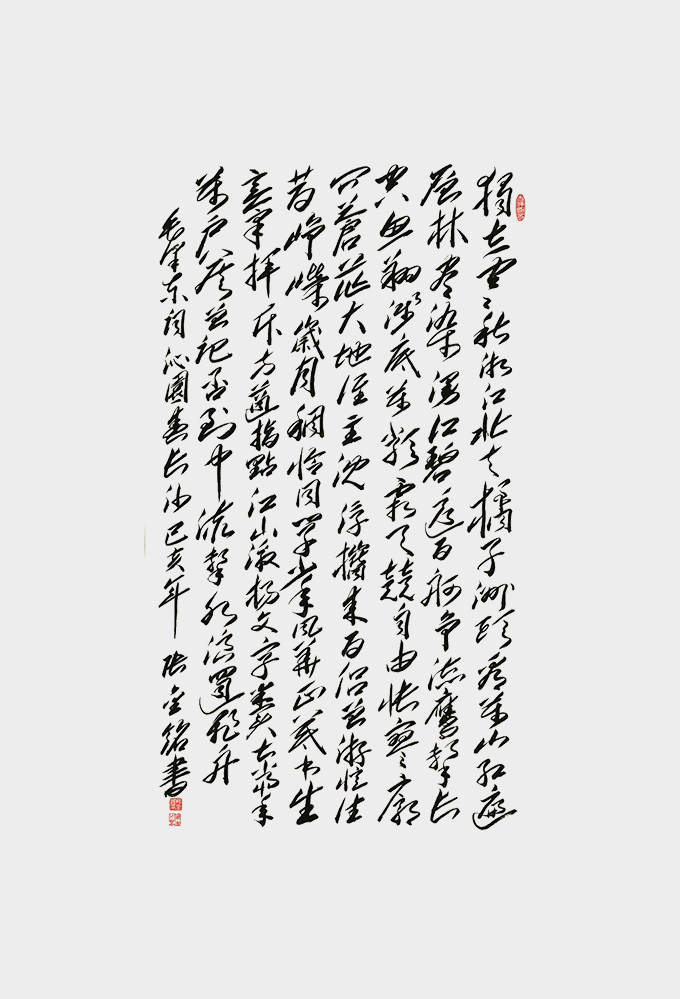 獨立寒秋湘江北去橘子洲頭看萬山紅遍
層林盡染漫江碧透百舸爭流鷹擊長
空魚翔淺底萬類霜天競自由悵寥廓
問蒼茫大地誰主沉浮攜來百侣曾游憶往
昔崢嶸歲月稠恰同學少年風華正茂書生
意氣揮斥方遒指點江山激揚文字糞土當年
萬戶侯曾記否到中流擊水浪遏飛舟
毛澤東詞沁園春長沙己亥年張金銘書